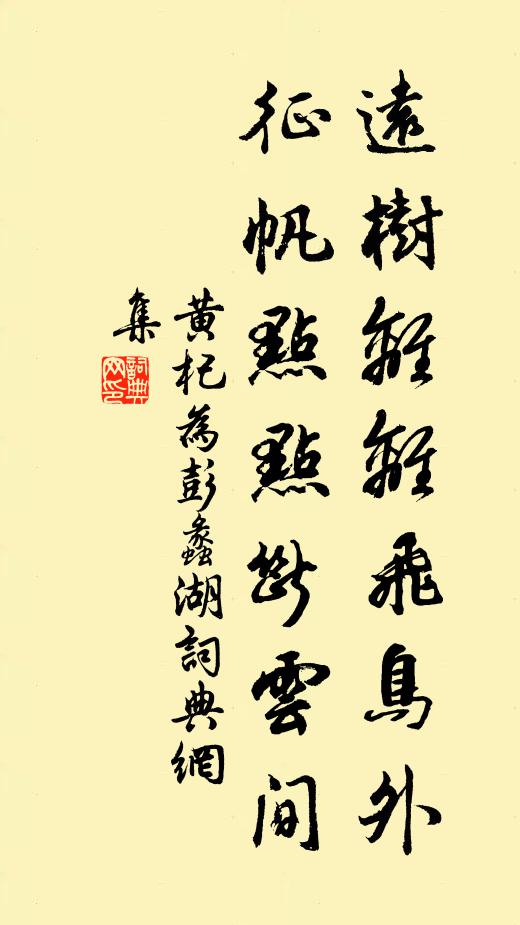 遠樹離離飛鳥外
征帆點點斷雲間
黃杞為彭蠡湖詞典網
集
詞典
网印